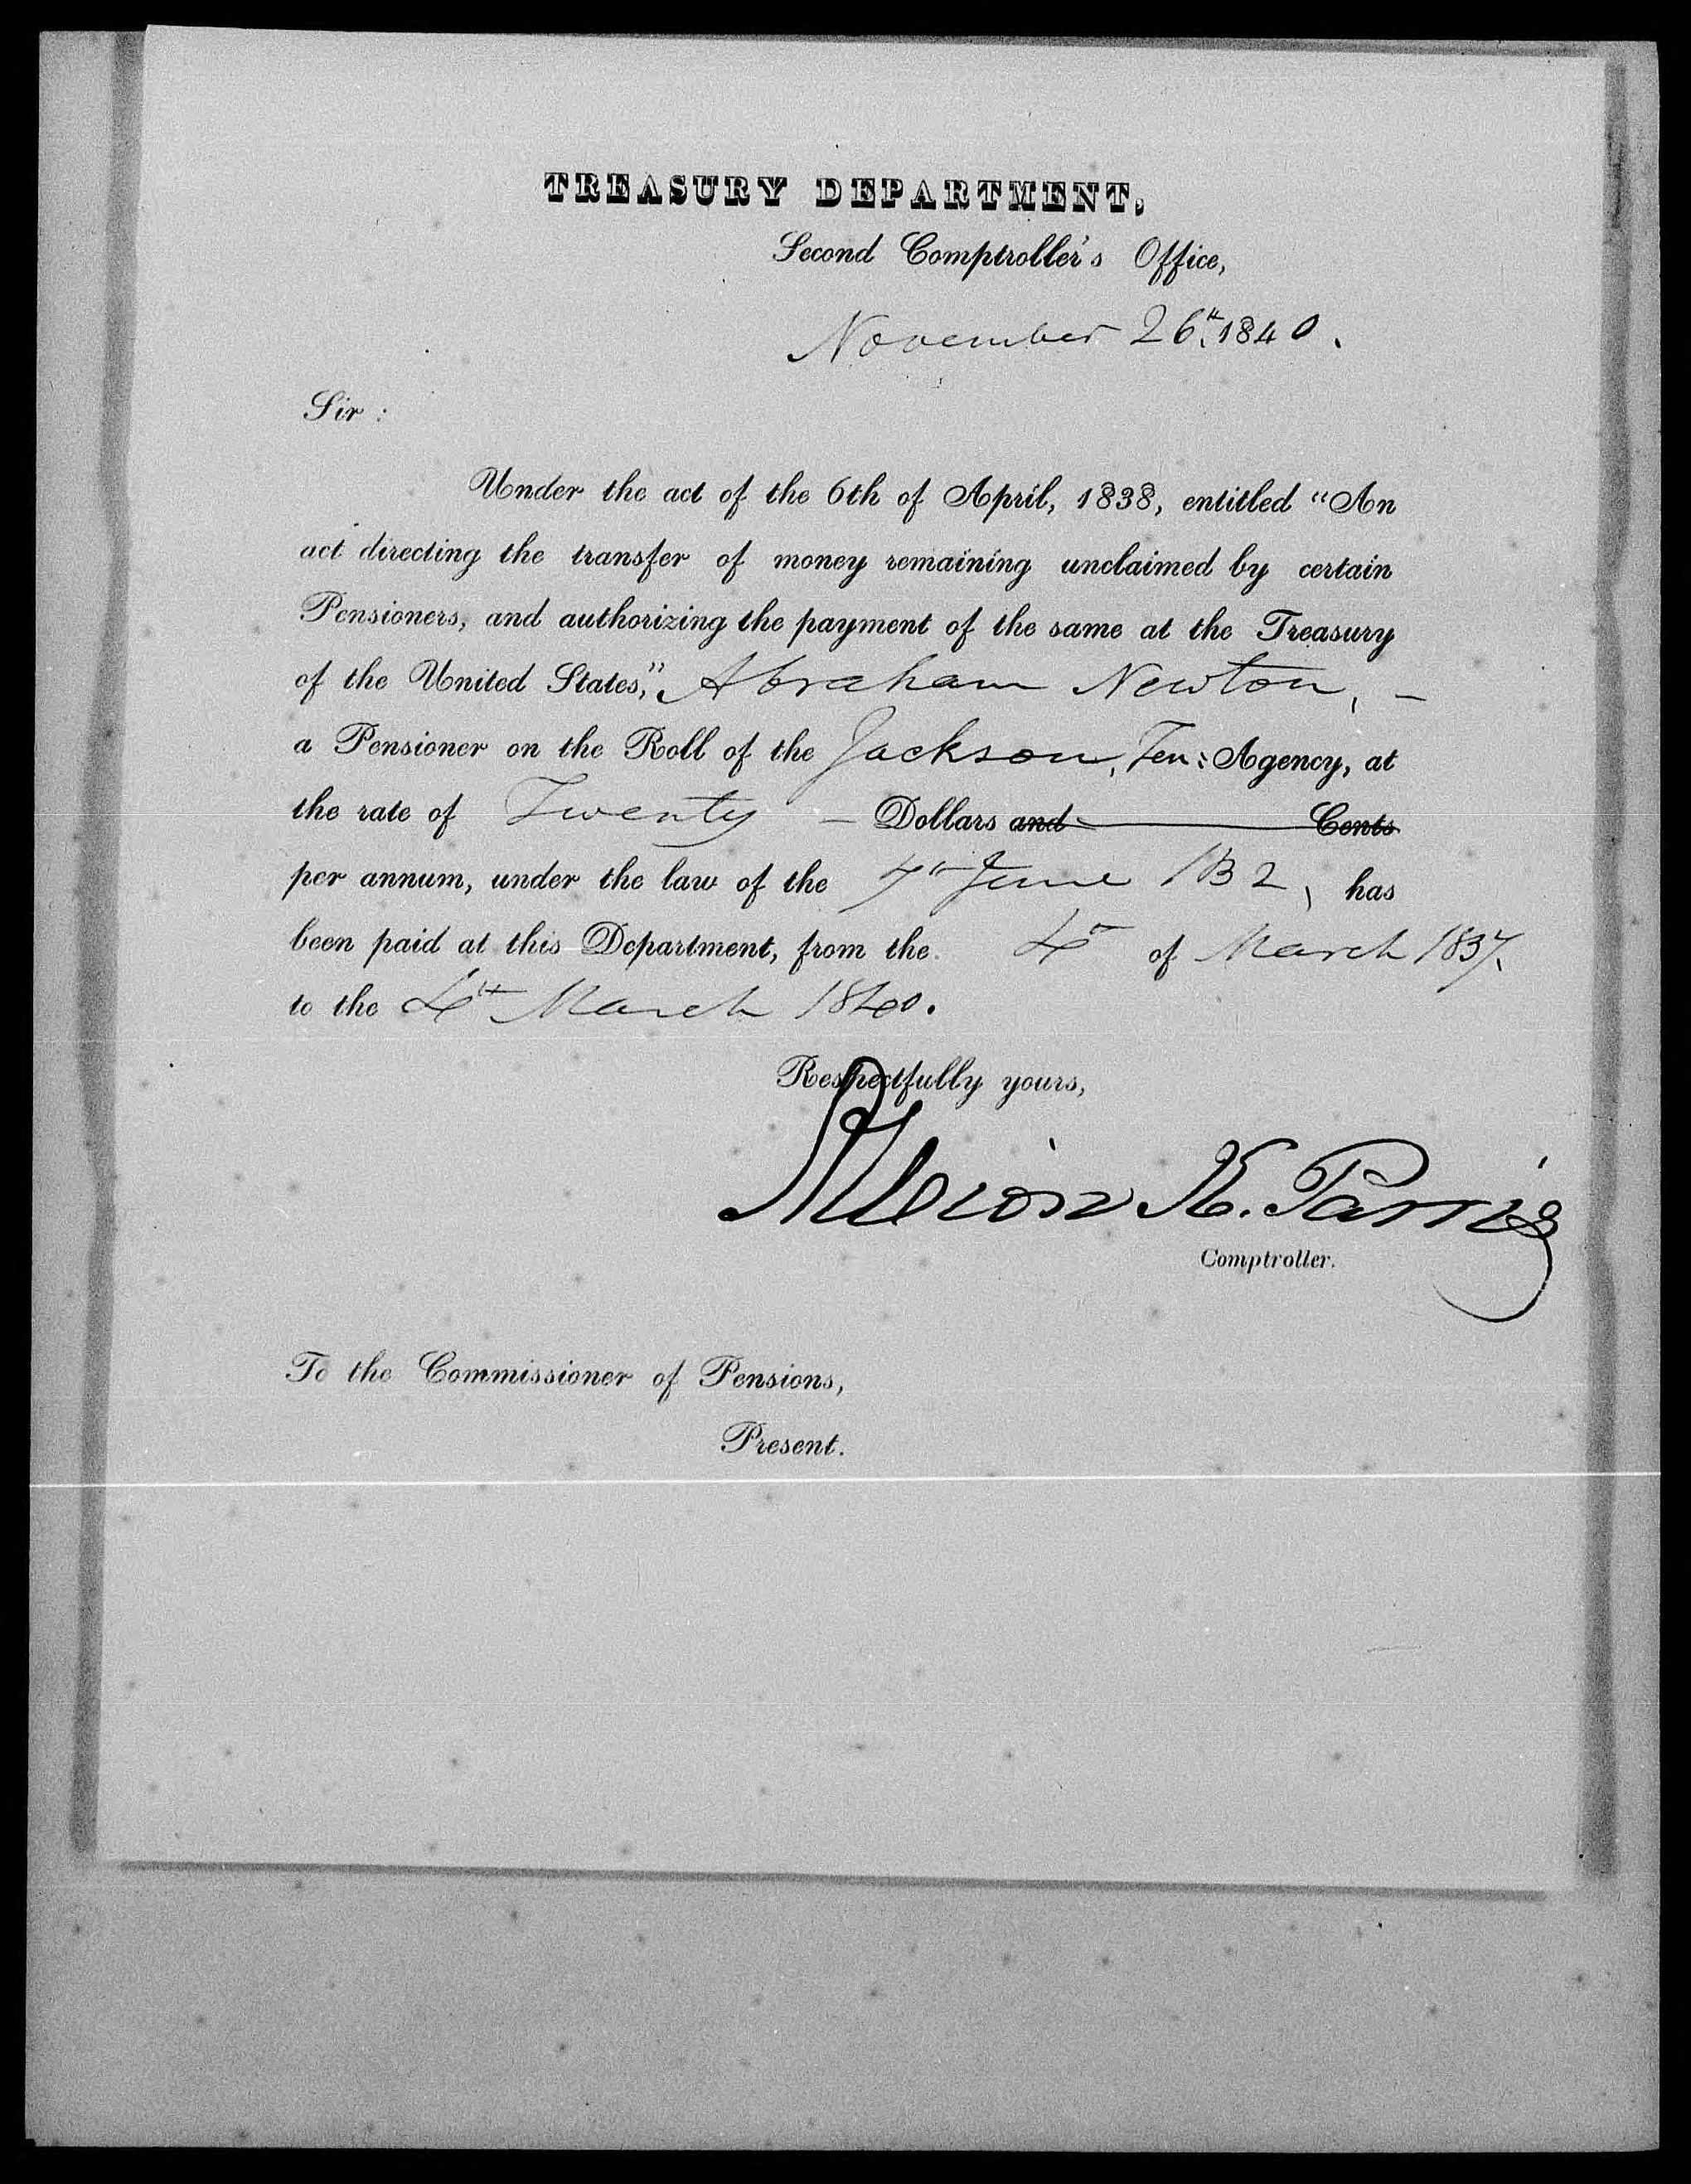 TREASURY DEPARTMENT,
Second Comptroller's Office,
November 26th, 1840.
Sir:
Under the act of the 6th of April, 1838, entitled "An
act directing the transfer of money remaining unclaimed by certain
Pensioners, and authorizing the payment of the same at the Treasury
of the United States," Abraham Newton, —
a Pensioner on the Roll of the Jackson, Ten: Agency, at
the rate of Twenty — Dollars and Cents
per annum, under the law of the 7th June 1832, has
been paid at this Department, from the 4th of March 1837,
to the 4th March 1840.
Respectfully yours,
Albion K. Parris
Comptroller.
To the Commissioner of Pensions,
Present.